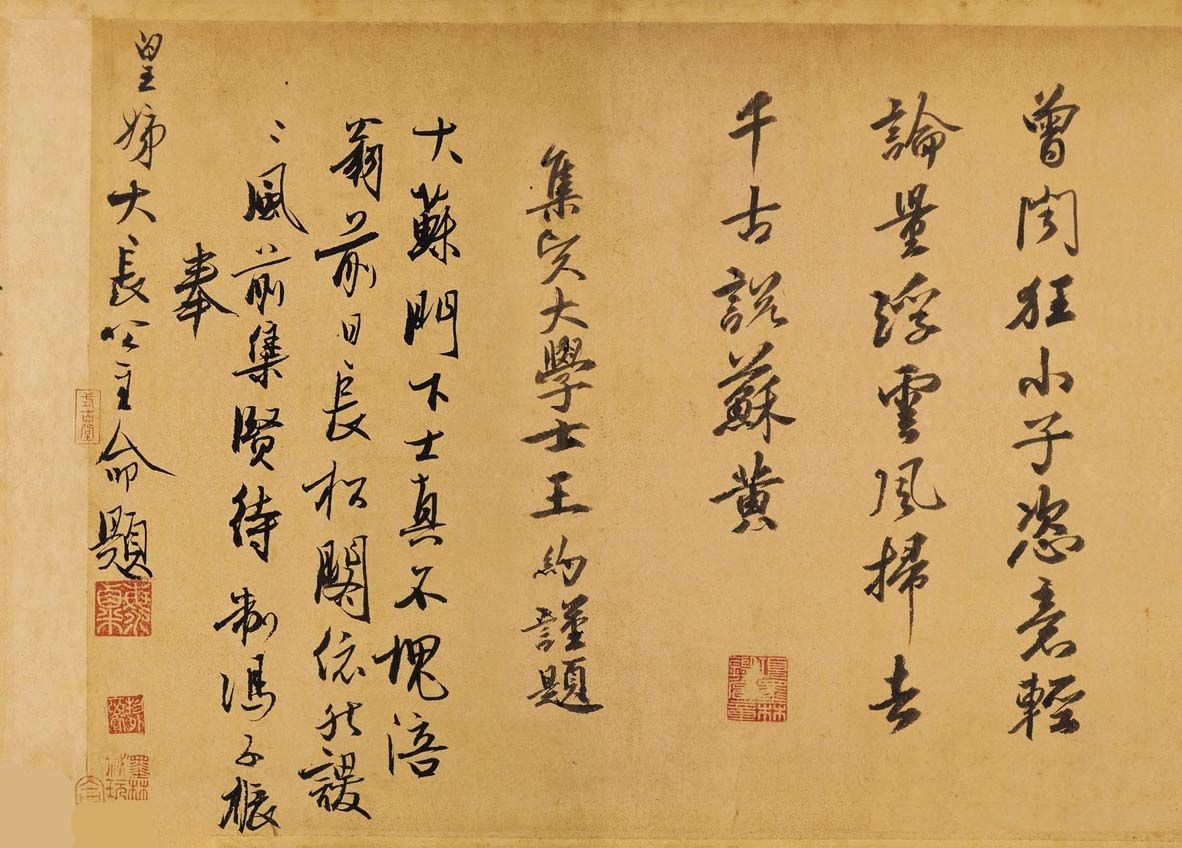 曾聞狂小子恣意輕
論量浮雲風掃去
千古説蘇黄
集賢大學士王約謹題
大蘇門下士真不愧涪
翁前日長松閣依然謖
〻風前集賢待制馮子振
奉
皇姊大長公主命題
式古堂